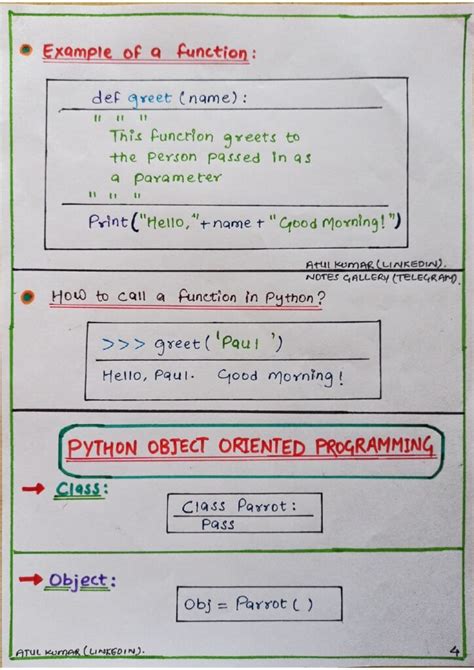 Example of a function:
def greet (name):
" " "
This function greets to
the person passed in as
a parameter
" " "
Print("Hello,"+name+"Good Morning!")
ATUL KUMAR (LINKEDIN).
NOTES GALLERY (TELEGRAM).
How to call a function in Python?
>>> greet('Paul')
Hello, Paul. Good morning!
PYTHON OBJECT ORIENTED PROGRAMMING
Class:
Class Parrot:
Pass
Object:
Obj = Parrot()
ATUL KUMAR (LINKEDIN).
4